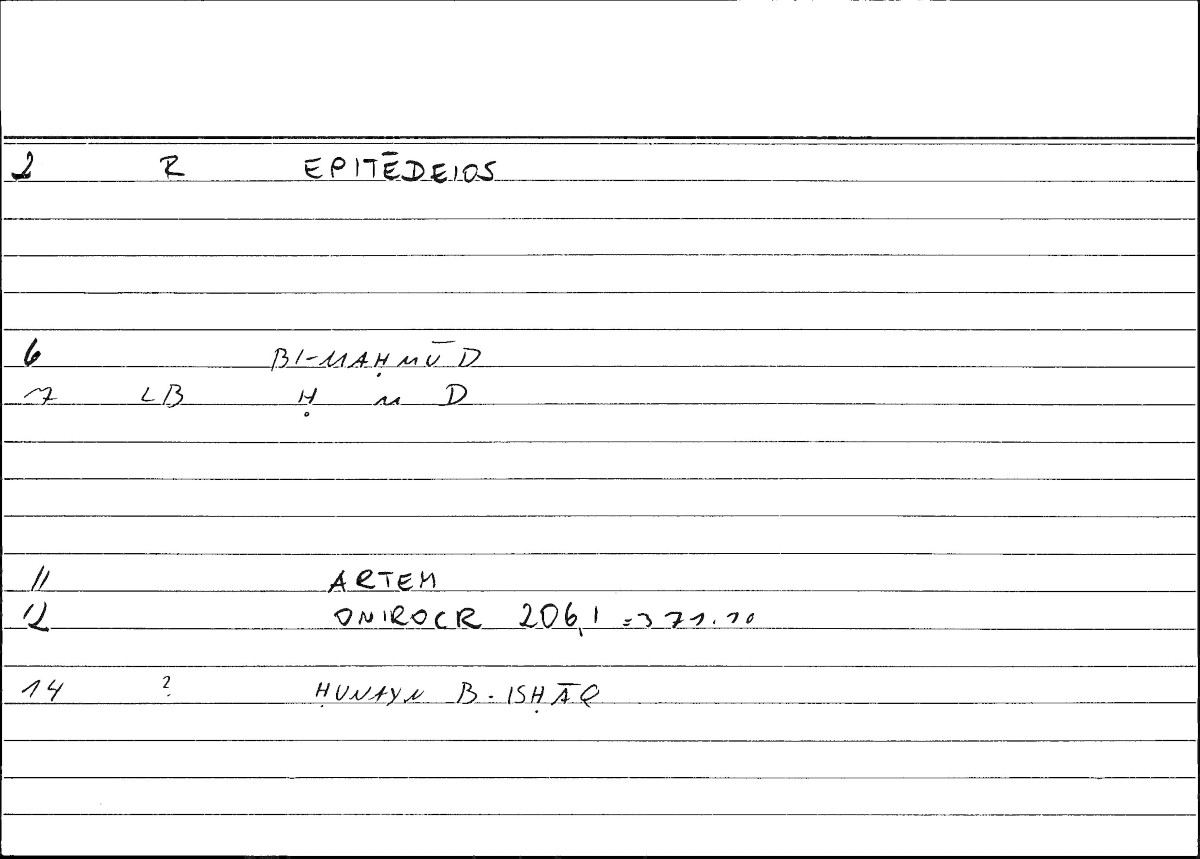 2 R EPITĒDEIOS
6 BI-MAḤMŪD
7 LB Ḥ M D
11 ARTEM
12 ONIROCR 206,1 = 371.10
14 ? ḤUNAYN B. ISḤĀQ